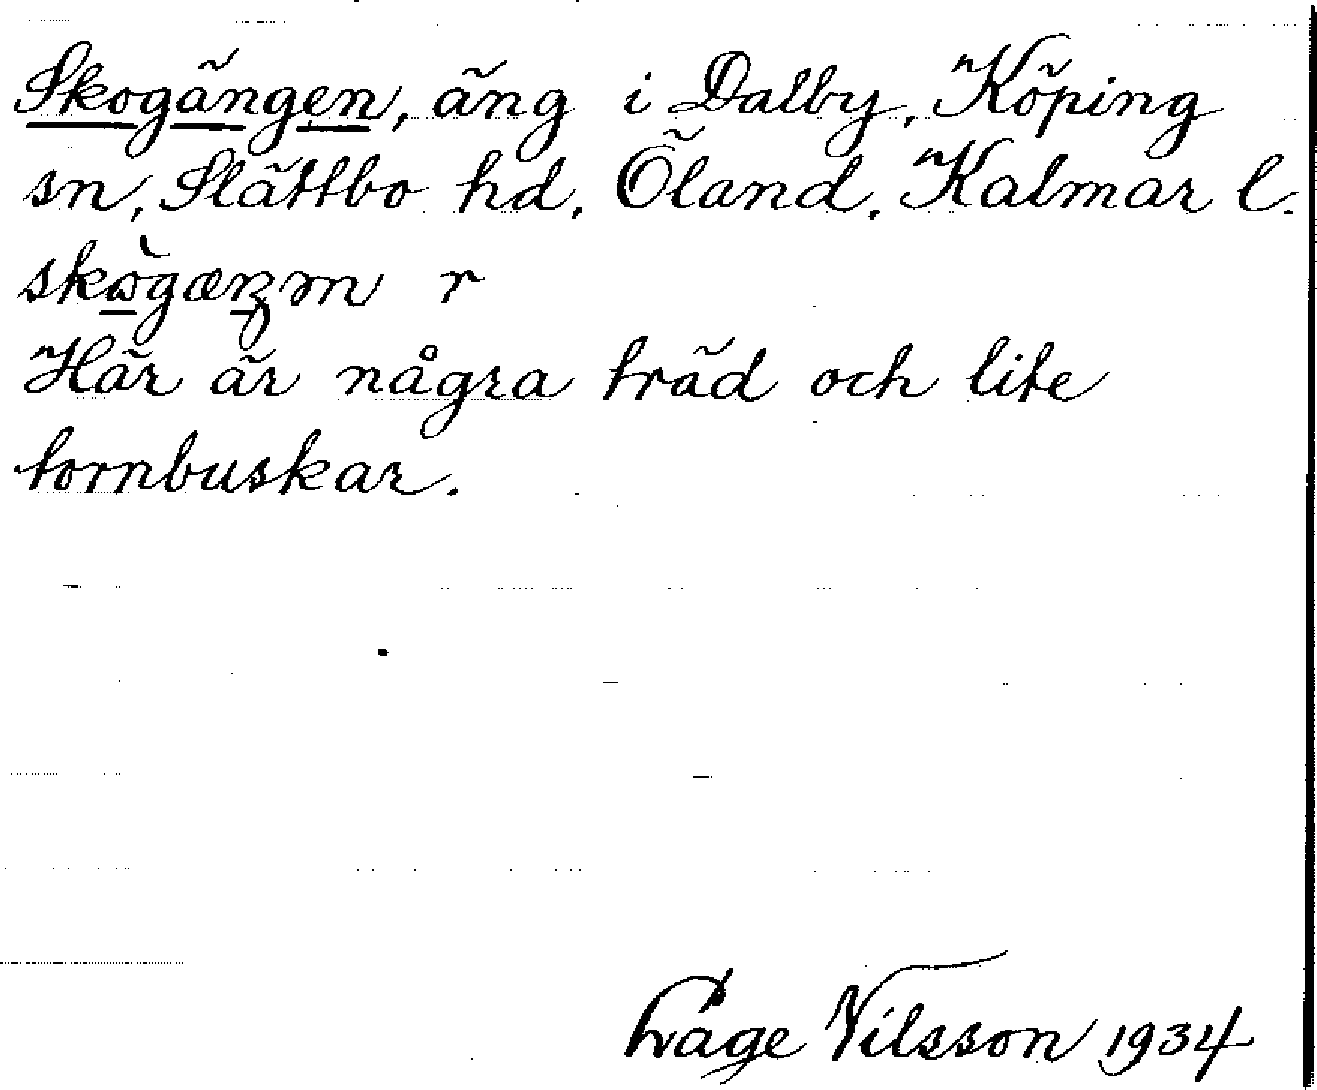 Skogängen, äng i Dalby, Köping
sn, Slättbo hd, Öland, Kalmar l.
Här är några träd och lite
tornbuskar.
Nilsson 1934